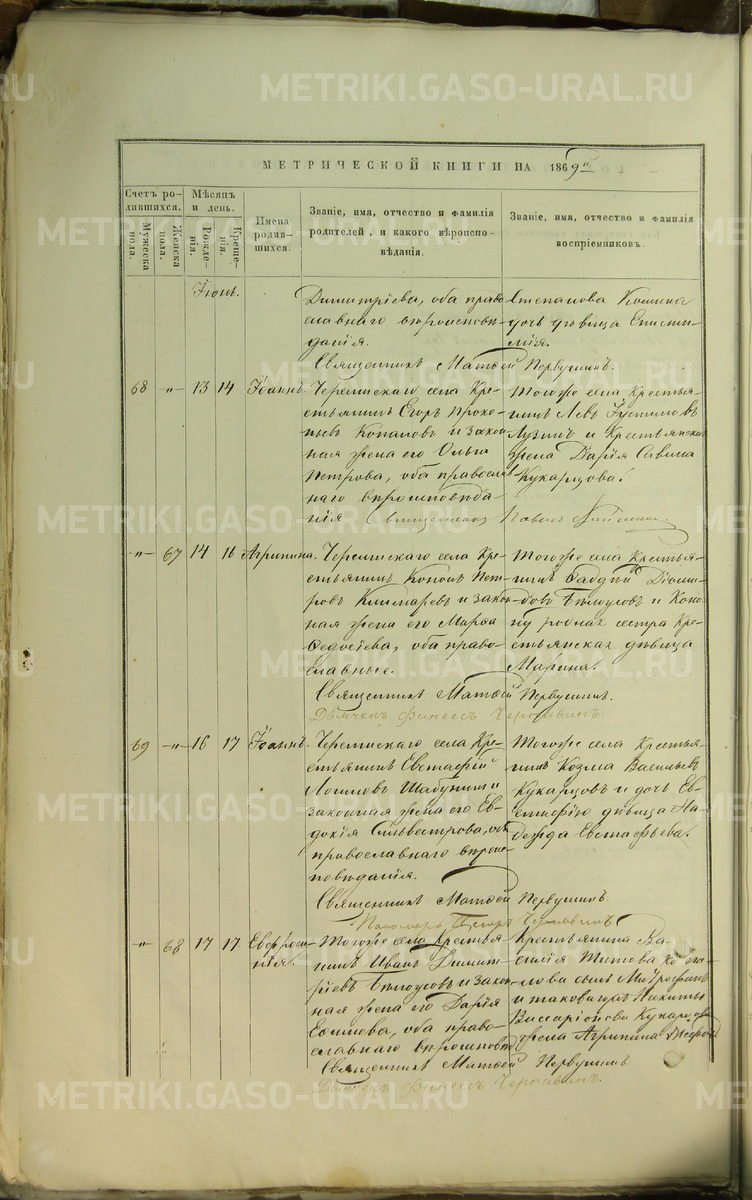 МЕТРИЧЕСКОЙ КНИГИ НА 1869й
Счетъ родившихся.
Мужеска пола.
Женска пола.
Мѣсяцъ и день.
Рожденія.
Крещенія.
Имена родившихся.
Званіе, имя, отчество и фамилія родителей, и какого вѣроисповѣданія.
Званіе, имя, отчество и фамилія воспріемниковъ.
Іюнь.
Димитріева, оба православнаго вѣроисповѣданія.
Степанова дочь дѣвица
Священникъ Матѳей Первушинъ.
68 -"- 13 14 Іоаннъ.
Черемискаго села Крестьянинъ Егоръ Прокопьевъ и законная жена его Ольга Петрова, оба православнаго вѣроисповѣданія
Тогоже села Крестьянинъ Левъ Лузинъ и Крестьянская жена Дарія Савина Кукарцова.
Священникъ Павелъ
-"- 67 14 16 Агрипина.
Черемискаго села Крестьянинъ Кононъ Петровъ и законная жена его Марѳа Ѳедосѣева, оба православные.
Тогоже села Крестьянинъ Бѣлоусовъ и Конону родная сестра Крестьянская дѣвица Марина.
Священникъ Матѳей Первушинъ.
Дьячекъ Финеесъ Чернавинъ.
69 -"- 16 17 Іоаннъ.
Черемискаго села Крестьянинъ Евстафій Логиновъ и законная жена его Евдокія Сильвестрова, оба православнаго вѣроисповѣданія.
Тогоже села Крестьянинъ Козма Васильевъ Кукарцовъ и дочь Евстафію дѣвица Надежда Евстафьева.
Священникъ Матѳей Первушинъ.
Пономарь
" 68 17 17 Евфросинія.
Тогоже села Крестьянинъ Иванъ Димитріевъ Бѣлоусовъ и законная жена его Дарія Ефимова, оба православнаго вѣроисповѣд.
Крестьянина Василія Титова сынъ Митрофанъ и таковагожъ Никиты Виссаріонова Кукарцова жена Агрипина
Священникъ Матѳей Первушинъ.
Дьячекъ Финеесъ Чернавинъ.
METRIKI.GASO-URAL.RU